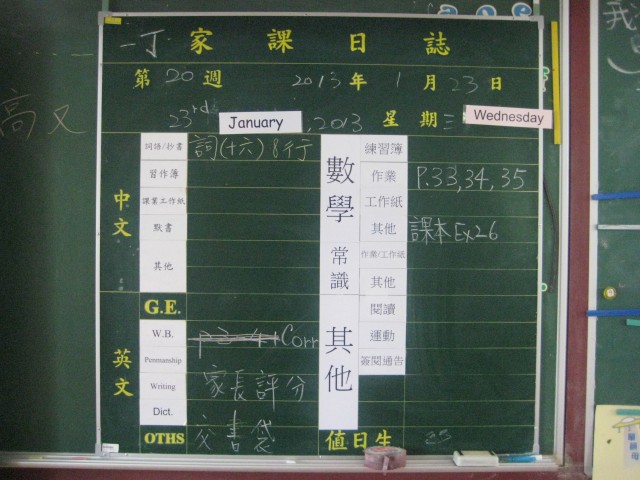 一丁 家課日誌
第 20 週 2013 年 1 月 23 日
23rd January, 2013 星期三 Wednesday
高又
我
中文
詞語/抄書 詞(十六) 8行
習作簿
課業工作紙
默書
其他
G.E.
英文
W.B. Corr
Penmanship
Writing 家長評分
Dict.
OTHS 交書袋
數學
練習簿
作業 P.33,34,35
工作紙
其他 課本 Ex26
常識
作業/工作紙
其他
其他
閱讀
運動
簽閱通告
值日生 23